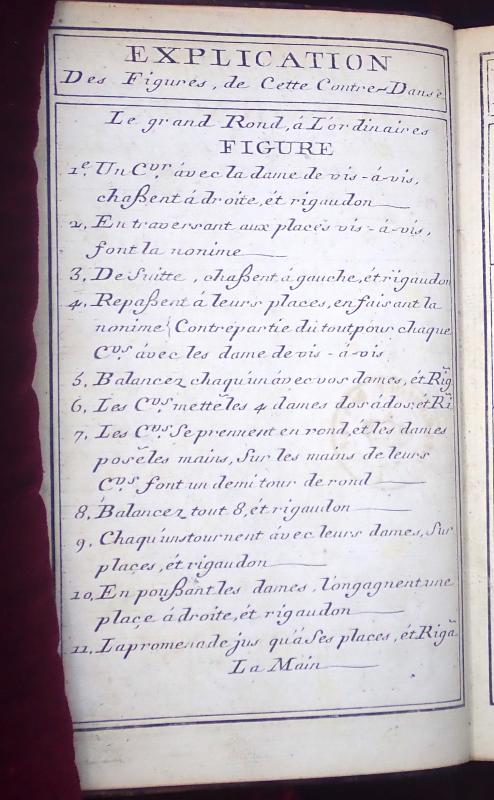 EXPLICATION
Des Figures, de Cette Contre-Danse
Le grand Rond, á L'ordinaires
FIGURE
1.e Un C.vr ávec la dame de vis-á-vis,
chaßent á droite, ét rigaudon
2, En traversant aux places vis-á-vis,
font la nonime
3, De Suitte, chaßent á gauche, ét rigaudon
4, Repaßent á leurs places, en faisant la
nonime { Contrepartie du tout pour chaque
C.vs ávec les dame de vis-á-vis
5, Balancez chaqu'un ávec vos dames, ét Rig̃
6, Les C.vs mettẽ les 4 dames dos á dos, ét Rĩ
7, Les C.vs Se prennent en rond, ét les dames
posẽ les mains, Sur les mains de leurs
C.vs font un demi tour de rond
8, Balancez tout 8, ét rigaudon
9, Chaqu'uns tournent ávec leurs dames, Sur
places, ét rigaudon
10, En poußant les dames, l'ongagnent une
place á droite, ét rigaudon
11, La promenade jus qu'á Ses places, ét Rigã
La Main